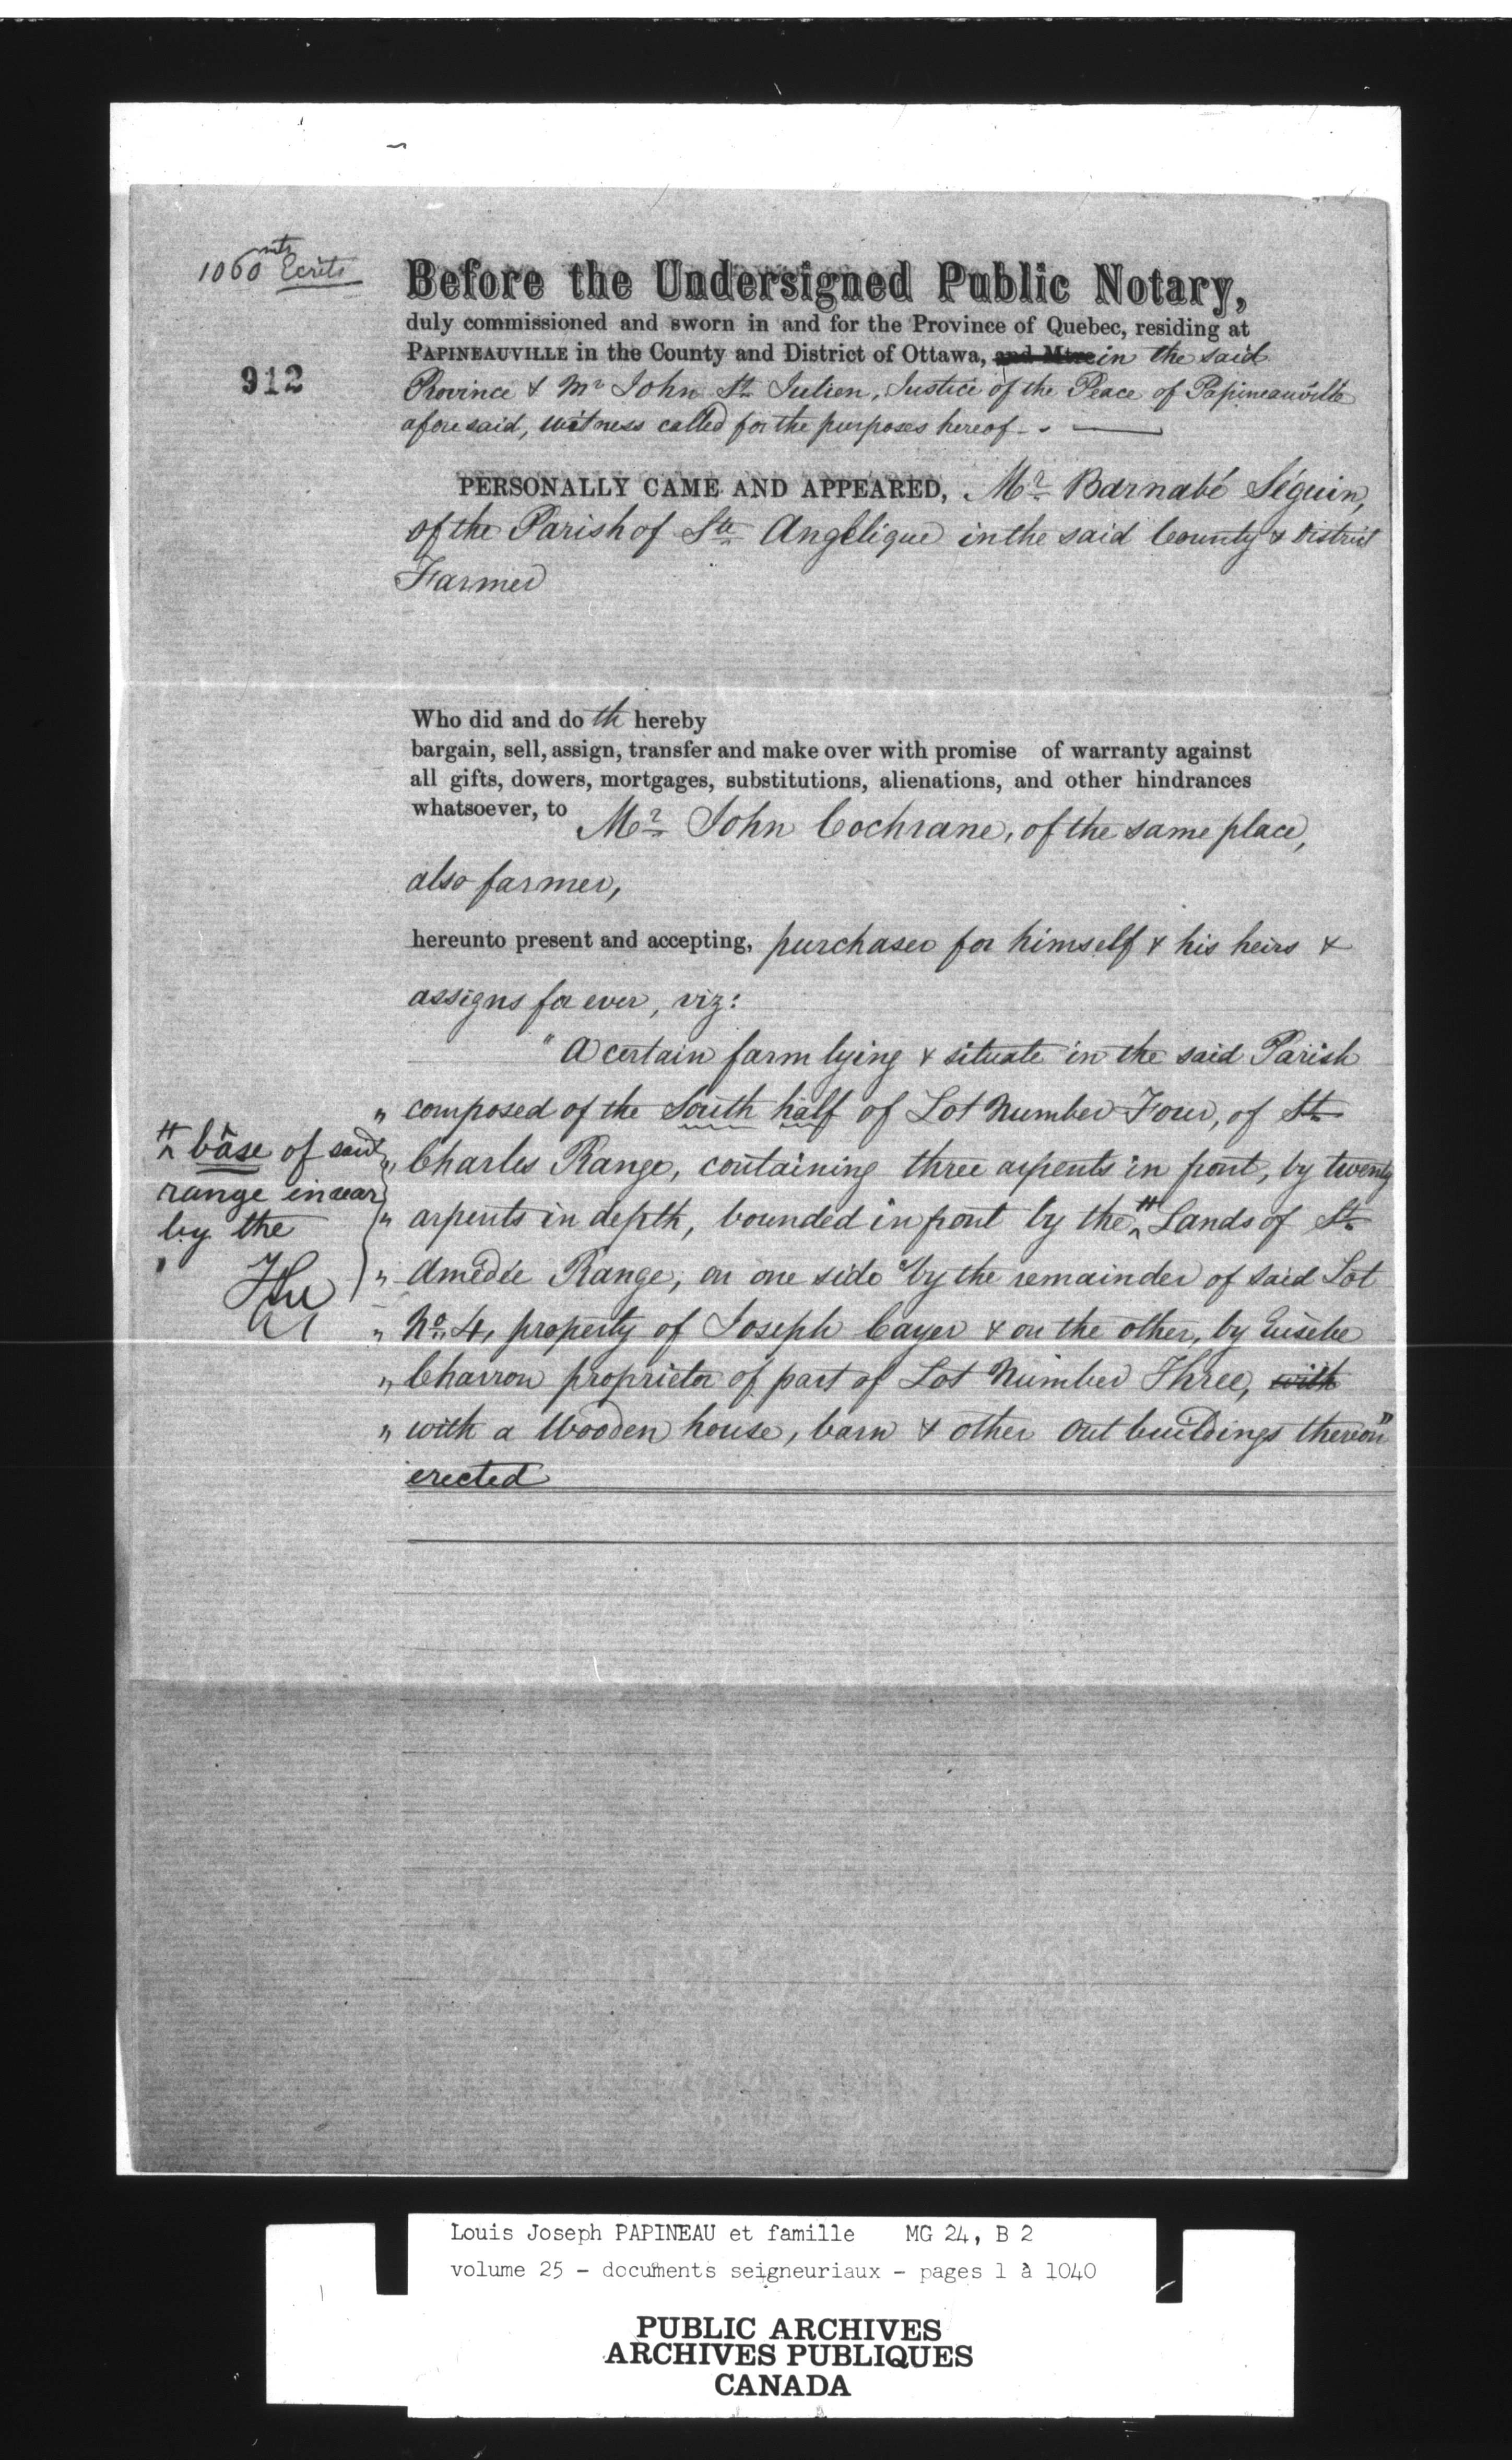 1060 mts Ecrits
912
Before the Undersigned Public Notary,
duly commissioned and sworn in and for the Province of Quebec, residing at
PAPINEAUVILLE in the County and District of Ottawa, and Mtre in the said
Province & Mr John St. Julien, Justice of the Peace of Papineauville
aforesaid, witness called for the purposes hereof - -
PERSONALLY CAME AND APPEARED, Mr Barnabé Séguin,
of the Parish of Ste Angélique in the said County & District
Farmer
Who did and do th hereby
bargain, sell, assign, transfer and make over with promise of warranty against
all gifts, dowers, mortgages, substitutions, alienations, and other hindrances
whatsoever, to Mr John Cochrane, of the same place,
also farmer,
hereunto present and accepting, purchaser for himself & his heirs &
assigns for ever, viz:
" A certain farm lying & situate in the said Parish
" composed of the South half of Lot Number Four, of St.
" Charles Range, containing three arpents in front, by twenty
" arpents in depth, bounded in front by the # Lands of St.
" Amédée Range, on one side by the remainder of said Lot
" No. 4, property of Joseph Cayer & on the other, by Eusèbe
" Charron proprietor of part of Lot Number Three, with
" with a Wooden house, barn & other out buildings thereon"
erected
# base of said
range in rear
by the
Louis Joseph PAPINEAU et famille MG 24, B 2
volume 25 - documents seigneuriaux - pages 1 à 1040
PUBLIC ARCHIVES
ARCHIVES PUBLIQUES
CANADA